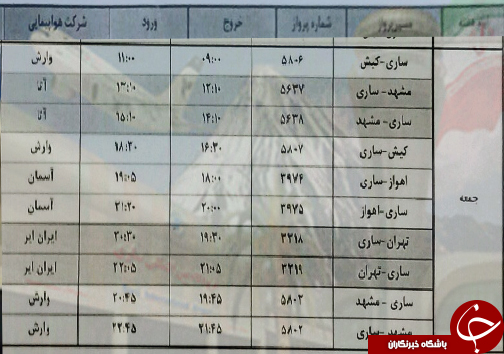 مسیر پرواز شماره پرواز خروج ورود شرکت هواپیمایی
جمعه
ساری-کیش ۵۸۰۶ ۰۹:۰۰ ۱۱:۰۰ وارش
مشهد-ساری ۵۶۳۷ ۱۲:۱۰ ۱۳:۱۰ آتا
ساری-مشهد ۵۶۳۸ ۱۴:۱۰ ۱۵:۱۰ آتا
کیش-ساری ۵۸۰۷ ۱۶:۳۰ ۱۸:۳۰ وارش
اهواز-ساری ۳۹۷۴ ۱۸:۰۰ ۱۹:۰۵ آسمان
ساری-اهواز ۳۹۷۵ ۲۰:۰۰ ۲۱:۲۰ آسمان
تهران-ساری ۳۲۱۸ ۱۹:۳۰ ۲۰:۳۰ ایران ایر
ساری-تهران ۳۲۱۹ ۲۱:۰۵ ۲۲:۰۵ ایران ایر
ساری - مشهد ۵۸۰۳ ۱۹:۴۵ ۲۰:۴۵ وارش
مشهد-ساری ۵۸۰۲ ۲۱:۴۵ ۲۲:۴۵ وارش
باشگاه خبرنگاران